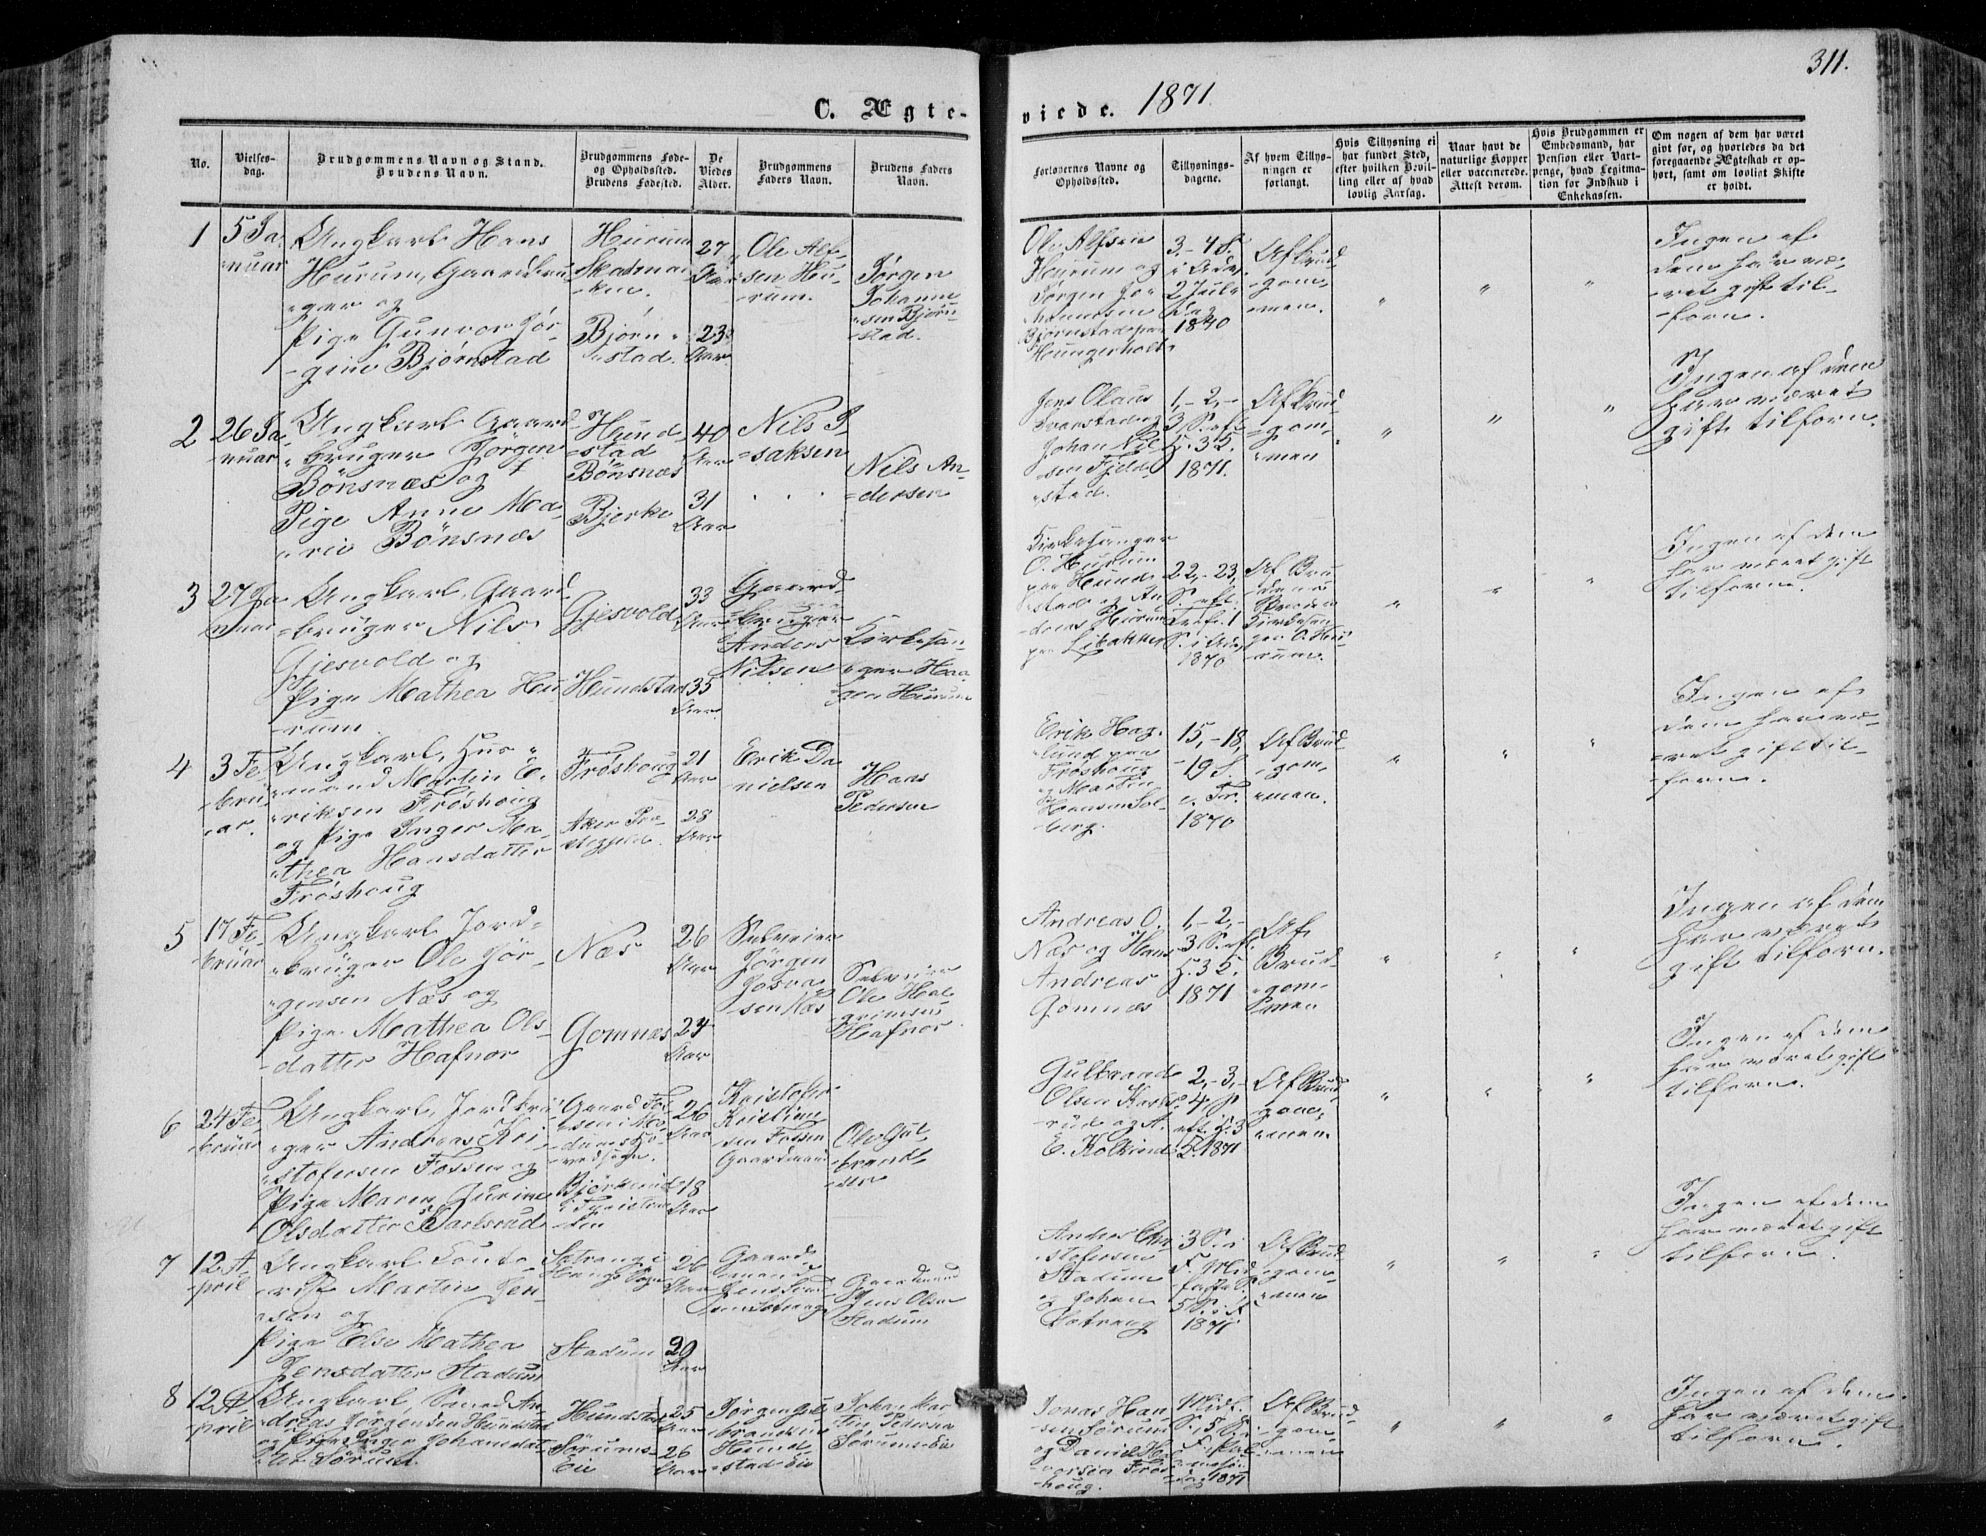 311.
C. Ægte-
viede. 1871.
No.
Vielses-
dag.
Brudgommens Navn og Stand.
Brudens Navn.
Brudgommens Føde-
og Opholdssted.
Brudens Fødested.
De
Viedes
Alder.
Brudgommens
Faders Navn.
Brudens Faders
Navn.
Forlovernes Navne og
Opholdssted.
Tillysnings-
dagene.
Af hvem Tillys-
ningen er
forlangt.
Hvis Tillysning ei
har fundet Sted,
efter hvilken Bevil-
ling eller af hvad
lovlig Aarsag.
Naar havt de
naturlige Kopper
eller vaccinerede.
Attest derom.
Hvis Brudgommen er
Embedsmand, har
Pension eller Vart-
penge, hvad Legitma-
tion for Indskud i
Enkekassen.
Om nogen af dem har været
givt før, og hvorledes da det
foregaaende Ægteskab er op-
hørt, samt om lovligt Skifte
er holdt.
1
5 Ja-
nuar
Ungkarl Hans
Hurum, Gaardbru-
-ger og
Pige Gunvor Jør-
-gine Bjørnstad
Hurum
Bjørn-
stad.
27
Aar
23
Aar
Ole Alf-
sen Hu-
rum.
Jørgen
Johanne-
sen Bjørn-
stad.
Ole Alfsen
Hurum og
Jørgen Jo-
hannesen
Bjørnstad paa
3-4 S.
i Adv.
2 Jule
Dag
1840
Af Brud-
-gom-
-men.
" " "
Ingen af
dem har væ-
-ret gift til-
-forn.
2
26 Ja-
nuar
Ungkarl Gaard-
-bruger Jørgen
Bönsnæs og
Pige Anne Ma-
-rie Bönsnæs
Hund-
-stad
Bönsnæs
Bjerke
40
Aar
31
Aar
Nils I-
-saksen
Nils An-
-dersen
Jens Olaus
Svarstad og
Johan Niel-
sen Fjeld-
-stad.
1,-2,-
3 S. eft.
H. 3 K.
1871.
Af Brud-
-gom-
-men
" " "
Ingen af dem
har været
gift tilforn.
3
27 Ja-
nuar
Ungkarl, Gaard-
-bruger Nils
Gjesvold og
Pige Mathea Hu-
-rum
Gjesvold
Hundstad
33
Aar
35
Aar
Gaard-
bruger
Anders
Nilsen
Kirkesan-
-ger Haa-
gen Hurum
Kirkesanger
O. Hurum
paa Hund-
stad og An-
-dreas Hurum
22,-23,
S. eft.
Tref. 1
S. i Adv.
1870
Af Bru-
-dens
Kirkesan-
ger O. Hu-
rum.
" " "
Ingen af dem
har været gift
tilforn.
4
3 Fe-
-bru-
-ar.
Ungkarl, Hus-
-mand Martin E-
-riksen Frøshoug
og Pige Inger Ma-
-thea Hansdatter
Frøshoug
Frøshoug
Aker Præ-
-stegjeld.
21
Aar
28
Aar
Erik Da-
nielsen
Hans
Pedersen
Erik Hag-
lund paa
Frøshoug
og Martin
Hansen Sol-
berg.
15,-18,
-19 S.
e. Tr.
1870
Af Brud-
-gom-
-men.
" " "
Ingen af
dem har væ-
-ret gift til-
-forn.
5
17 Fe-
bruar
Ungkarl Jord-
-bruger Ole Jør-
-gensen Næs og
Pige Mathea Ols-
-datter Hafnor
Næs
Gomnæs
26
Aar
24
Aar
Selveier
Jørgen
Josva-
-sen Næs
Selveier
Ole Hal-
grimsen
Hafnor
Andreas O.
Næs og Hans
Andreas
Gomnæs
1,-2,-
3 S. eft.
H. 3 K.
1871
Af
Brud-
-gom-
men
" " "
Ingen af dem
har været
gift tilforn.
6
24 Fe-
bruar
Ungkarl, Jordbru-
-ger Andreas Kri-
-stofersen Fossum og
Pige Maren Gurine
Olsdatter Karlsrud
26
Aar
18
Aar
Kristofer
Kristian-
sen Fossen
Gaardmand
Ole Gul-
brand-
sen
Gulbrand
Olsen Karls-
rud og A.
E. Kolkind
2,-3,-
4, S.
eft. H. 3
K. 1871
Af Brud-
gom-
-men
" " "
Ingen af dem
har været gift
tilforne.
7
12 A-
pril
Ungkarl Conto-
-rist Martin Jen-
-sen og
Pige Else Mathea
Jensdatter Stadum
Setrang i
Haugs Sogn
Stadum
26
Aar
20
Aar
Gaard-
mand
Gaardmand
Jens Olsen
Stadum
Anders Chri-
stofersen
Stadum
og Johan
Sætrang
3 S. i
F. Mid-
faste S.
5 S. i F.
1871
Af Brud-
-gom-
-men
" " "
Ingen af dem
har været gift
tilforn.
8
12 A-
pril
Ungkarl, Smed An-
-dreas Jørgensen Hundstad
og Pige Inger Johannesdat-
-ter Sørum
Hundstad
Sørums-
Eie
25
Aar
26
Aar
Jørgen Gul-
brandsen
Hund-
-stad Eie
Johan Mar-
-tin Pedersen
Sørums Eie
Jonas Han-
sen Sørum
og Daniel Hal-
vorsen Frøs-
-houg.
Midf.
S., 5 S. i
F., Pal-
-mesøn-
-dag 1871
Af Brud-
-gom-
-men
" " "
Ingen af dem
har været gift
tilforn.